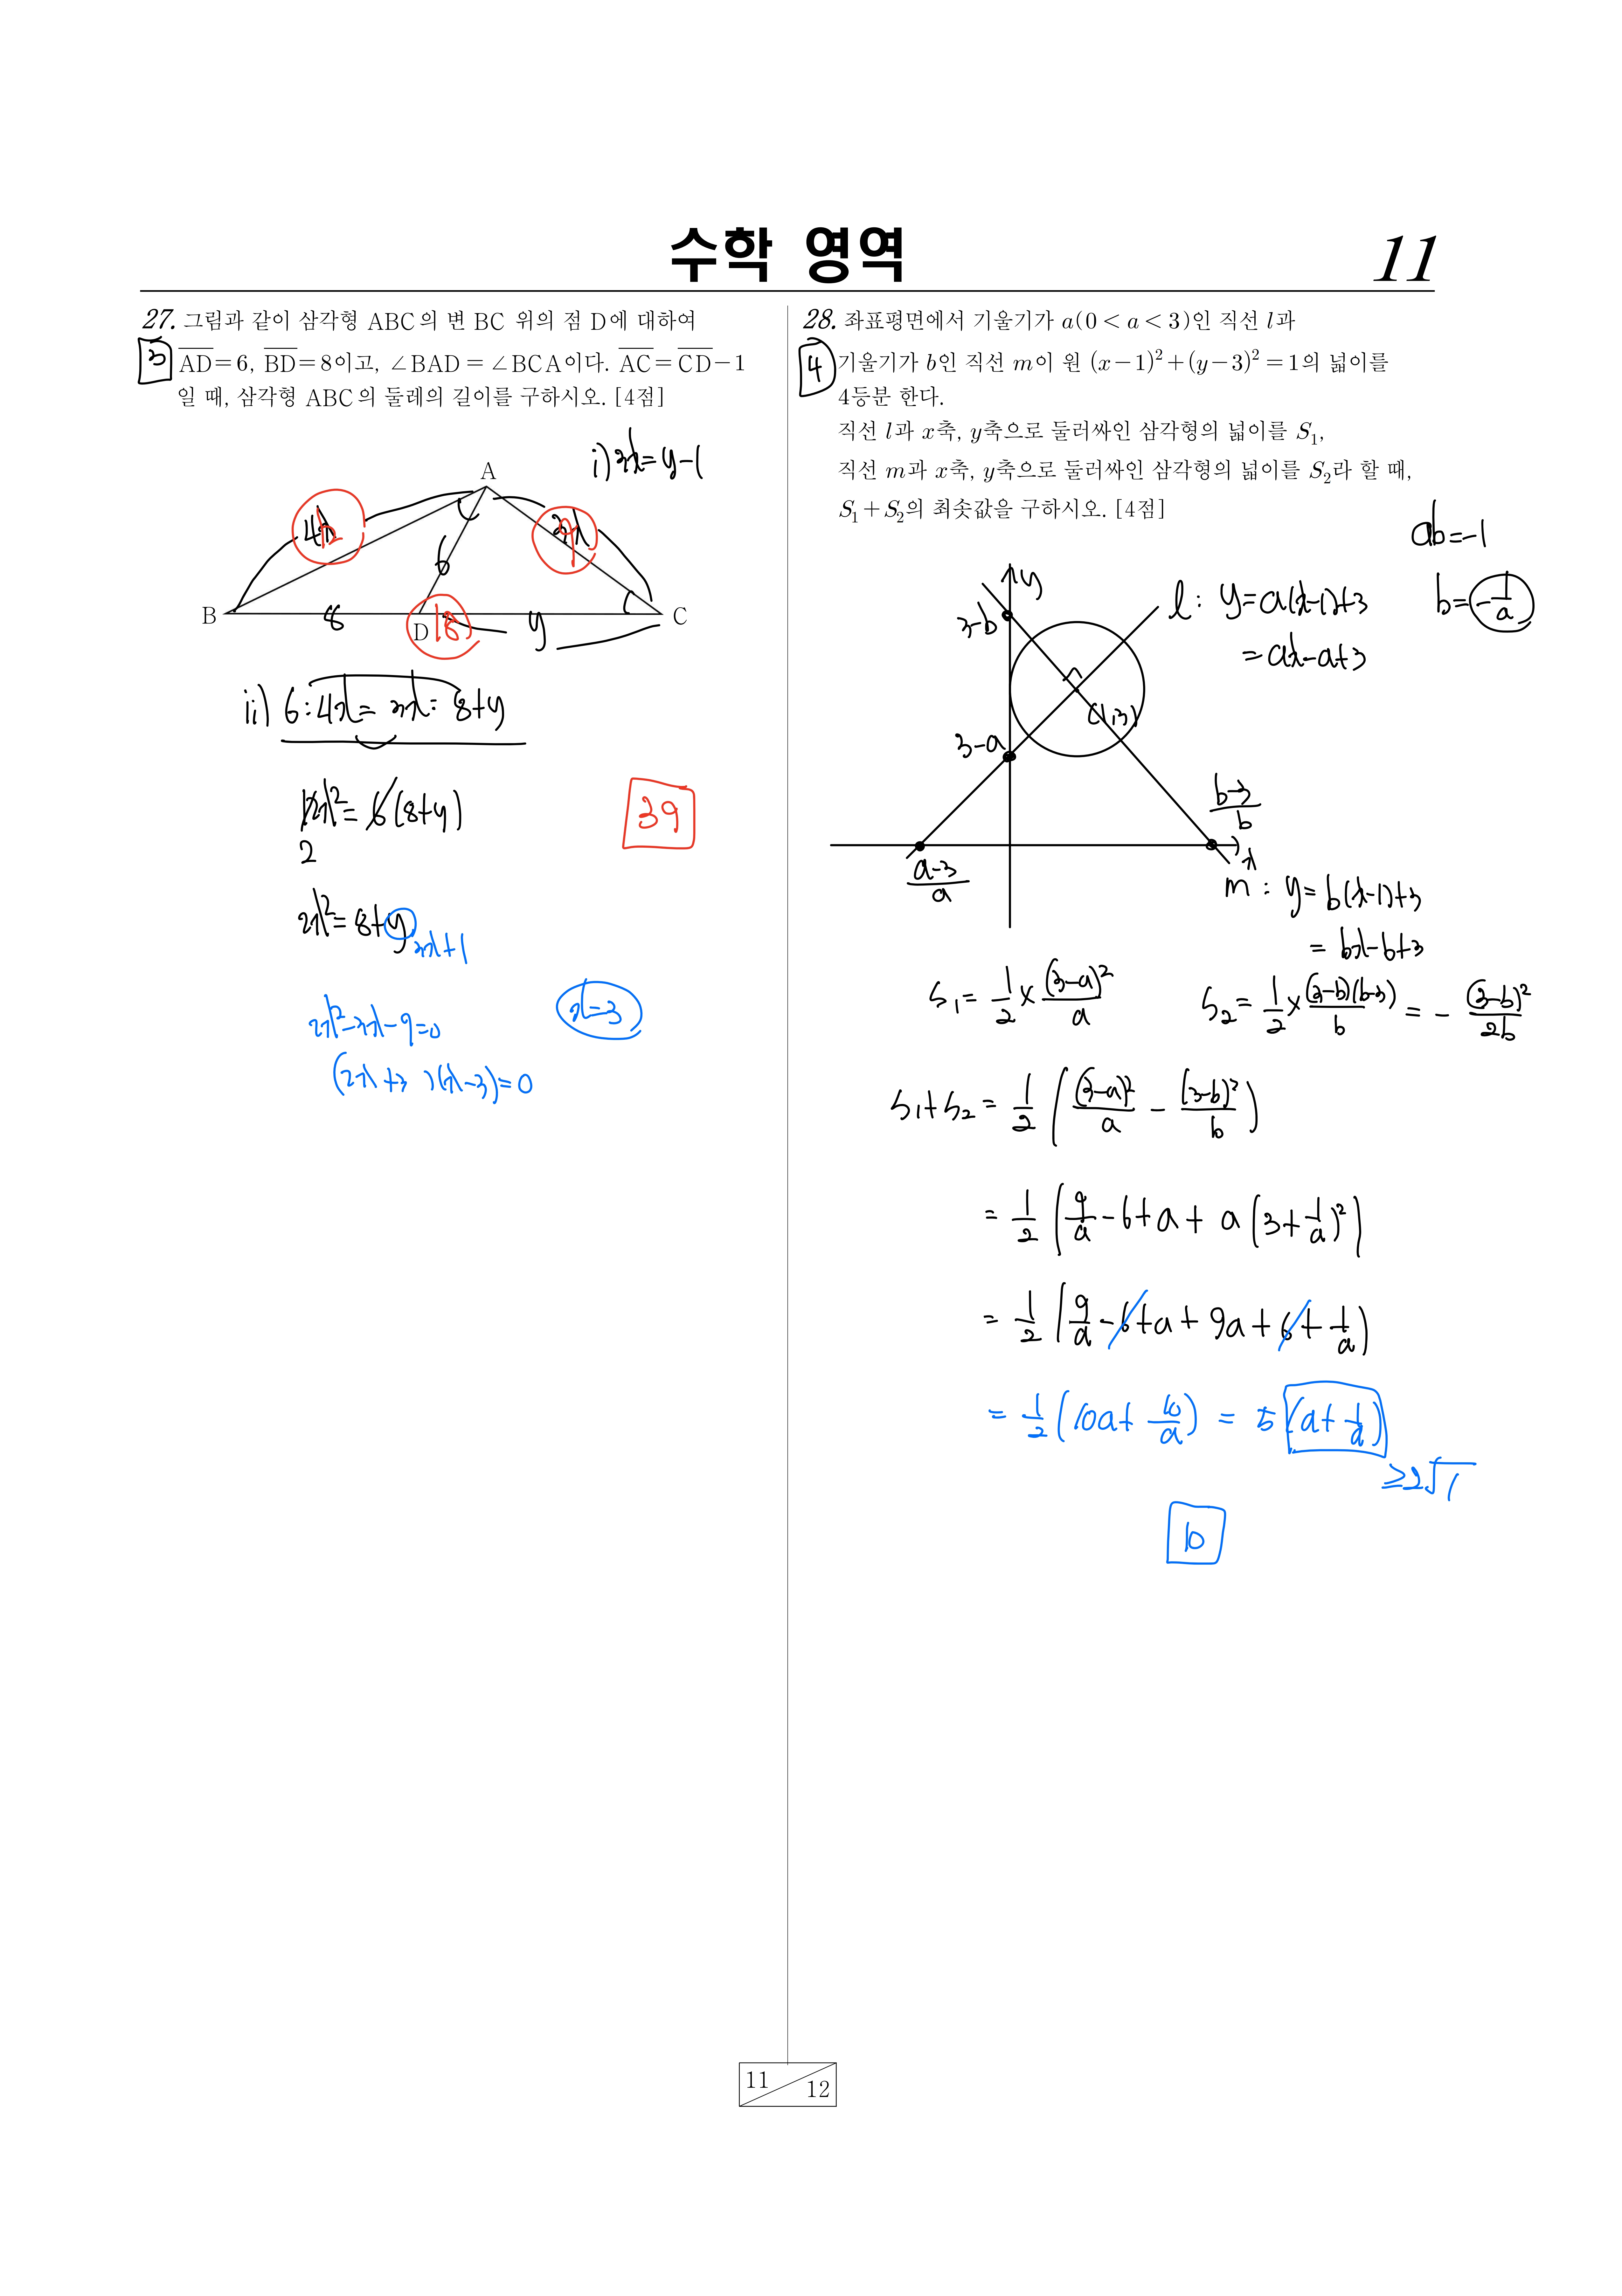 수학 영역
11
27. 그림과 같이 삼각형 ABC의 변 BC 위의 점 D에 대하여
3
AD=6, BD=8이고, ∠BAD=∠BCA이다. AC=CD-1
일 때, 삼각형 ABC의 둘레의 길이를 구하시오. [4점]
i) 3x=y-1
A
4x
12
3x
9
6
B
8
D
18
y
C
ii) 6:4x=3x:8+y
12x²=6(8+y)
2
39
2x²=8+y
3x+1
2x²-3x-9=0
x=3
(2x+3)(x-3)=0
28. 좌표평면에서 기울기가 a(0<a<3)인 직선 l과
4
기울기가 b인 직선 m이 원 (x-1)²+(y-3)²=1의 넓이를
4등분 한다.
직선 l과 x축, y축으로 둘러싸인 삼각형의 넓이를 S₁,
직선 m과 x축, y축으로 둘러싸인 삼각형의 넓이를 S₂라 할 때,
S₁+S₂의 최솟값을 구하시오. [4점]
ab=-1
b=-1/a
y
l: y=a(x-1)+3
=ax-a+3
3-b
(1,3)
3-a
(b-3)/b
x
(a-3)/a
m: y=b(x-1)+3
=bx-b+3
S₁=1/2×(3-a)²/a
S₂=1/2×(3-b)(b-3)/b=-(3-b)²/2b
S₁+S₂=1/2((3-a)²/a-(3-b)²/b)
=1/2(9/a-6+a+a(3+1/a)²)
=1/2(9/a-6+a+9a+6+1/a)
=1/2(10a+10/a)=5(a+1/a)
≥2√1
10
11
12